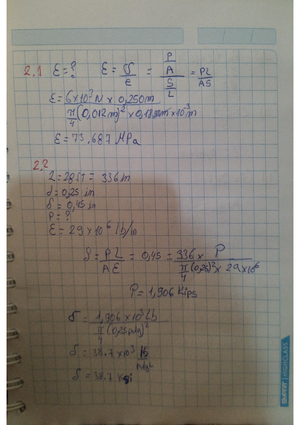 2.1 E=? E = σ/ε = (P/A)/(S/L) = PL/AS
E = 6x10³ N x 0,250m / π/4 (0,012m)² x 0,18 x10⁻³m
E = 73,687 MPa
2,2
L=28ft = 336 in
d=0,25 in
δ = 0,45 in
P = ?
E = 29 x 10⁶ lb/in
δ = PL/AE = 0,45 = 336 x P / π/4 (0,25)² x 29 x10⁶
P = 1,906 Kips
σ = 1,906 x10³ Lb / π/4 (0,25pulg)²
σ = 38.7 x10³ lb/pulg²
σ = 38.7 ksi